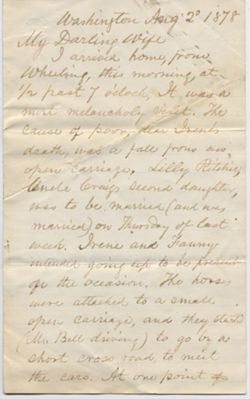 Washington Aug 2d 1878
My Darling Wife
I arrived home, from
Wheeling, this morning, at
1/2 past 7 oclock, It was a
most melancholy visit. The
cause of poor, dear Irene's
death, was a fall from an
open carriage, Lilly Ritchie,
Uncle Craig's second daughter,
was to be married (and was
married) on Thursday of last
week. Irene and Fanny
intended going up to be present
on the occasion. The horses
were attached to a small
open carriage, and they started
(Mr. Bell driving) to go by a
short cross road to meet
the cars. At one point of